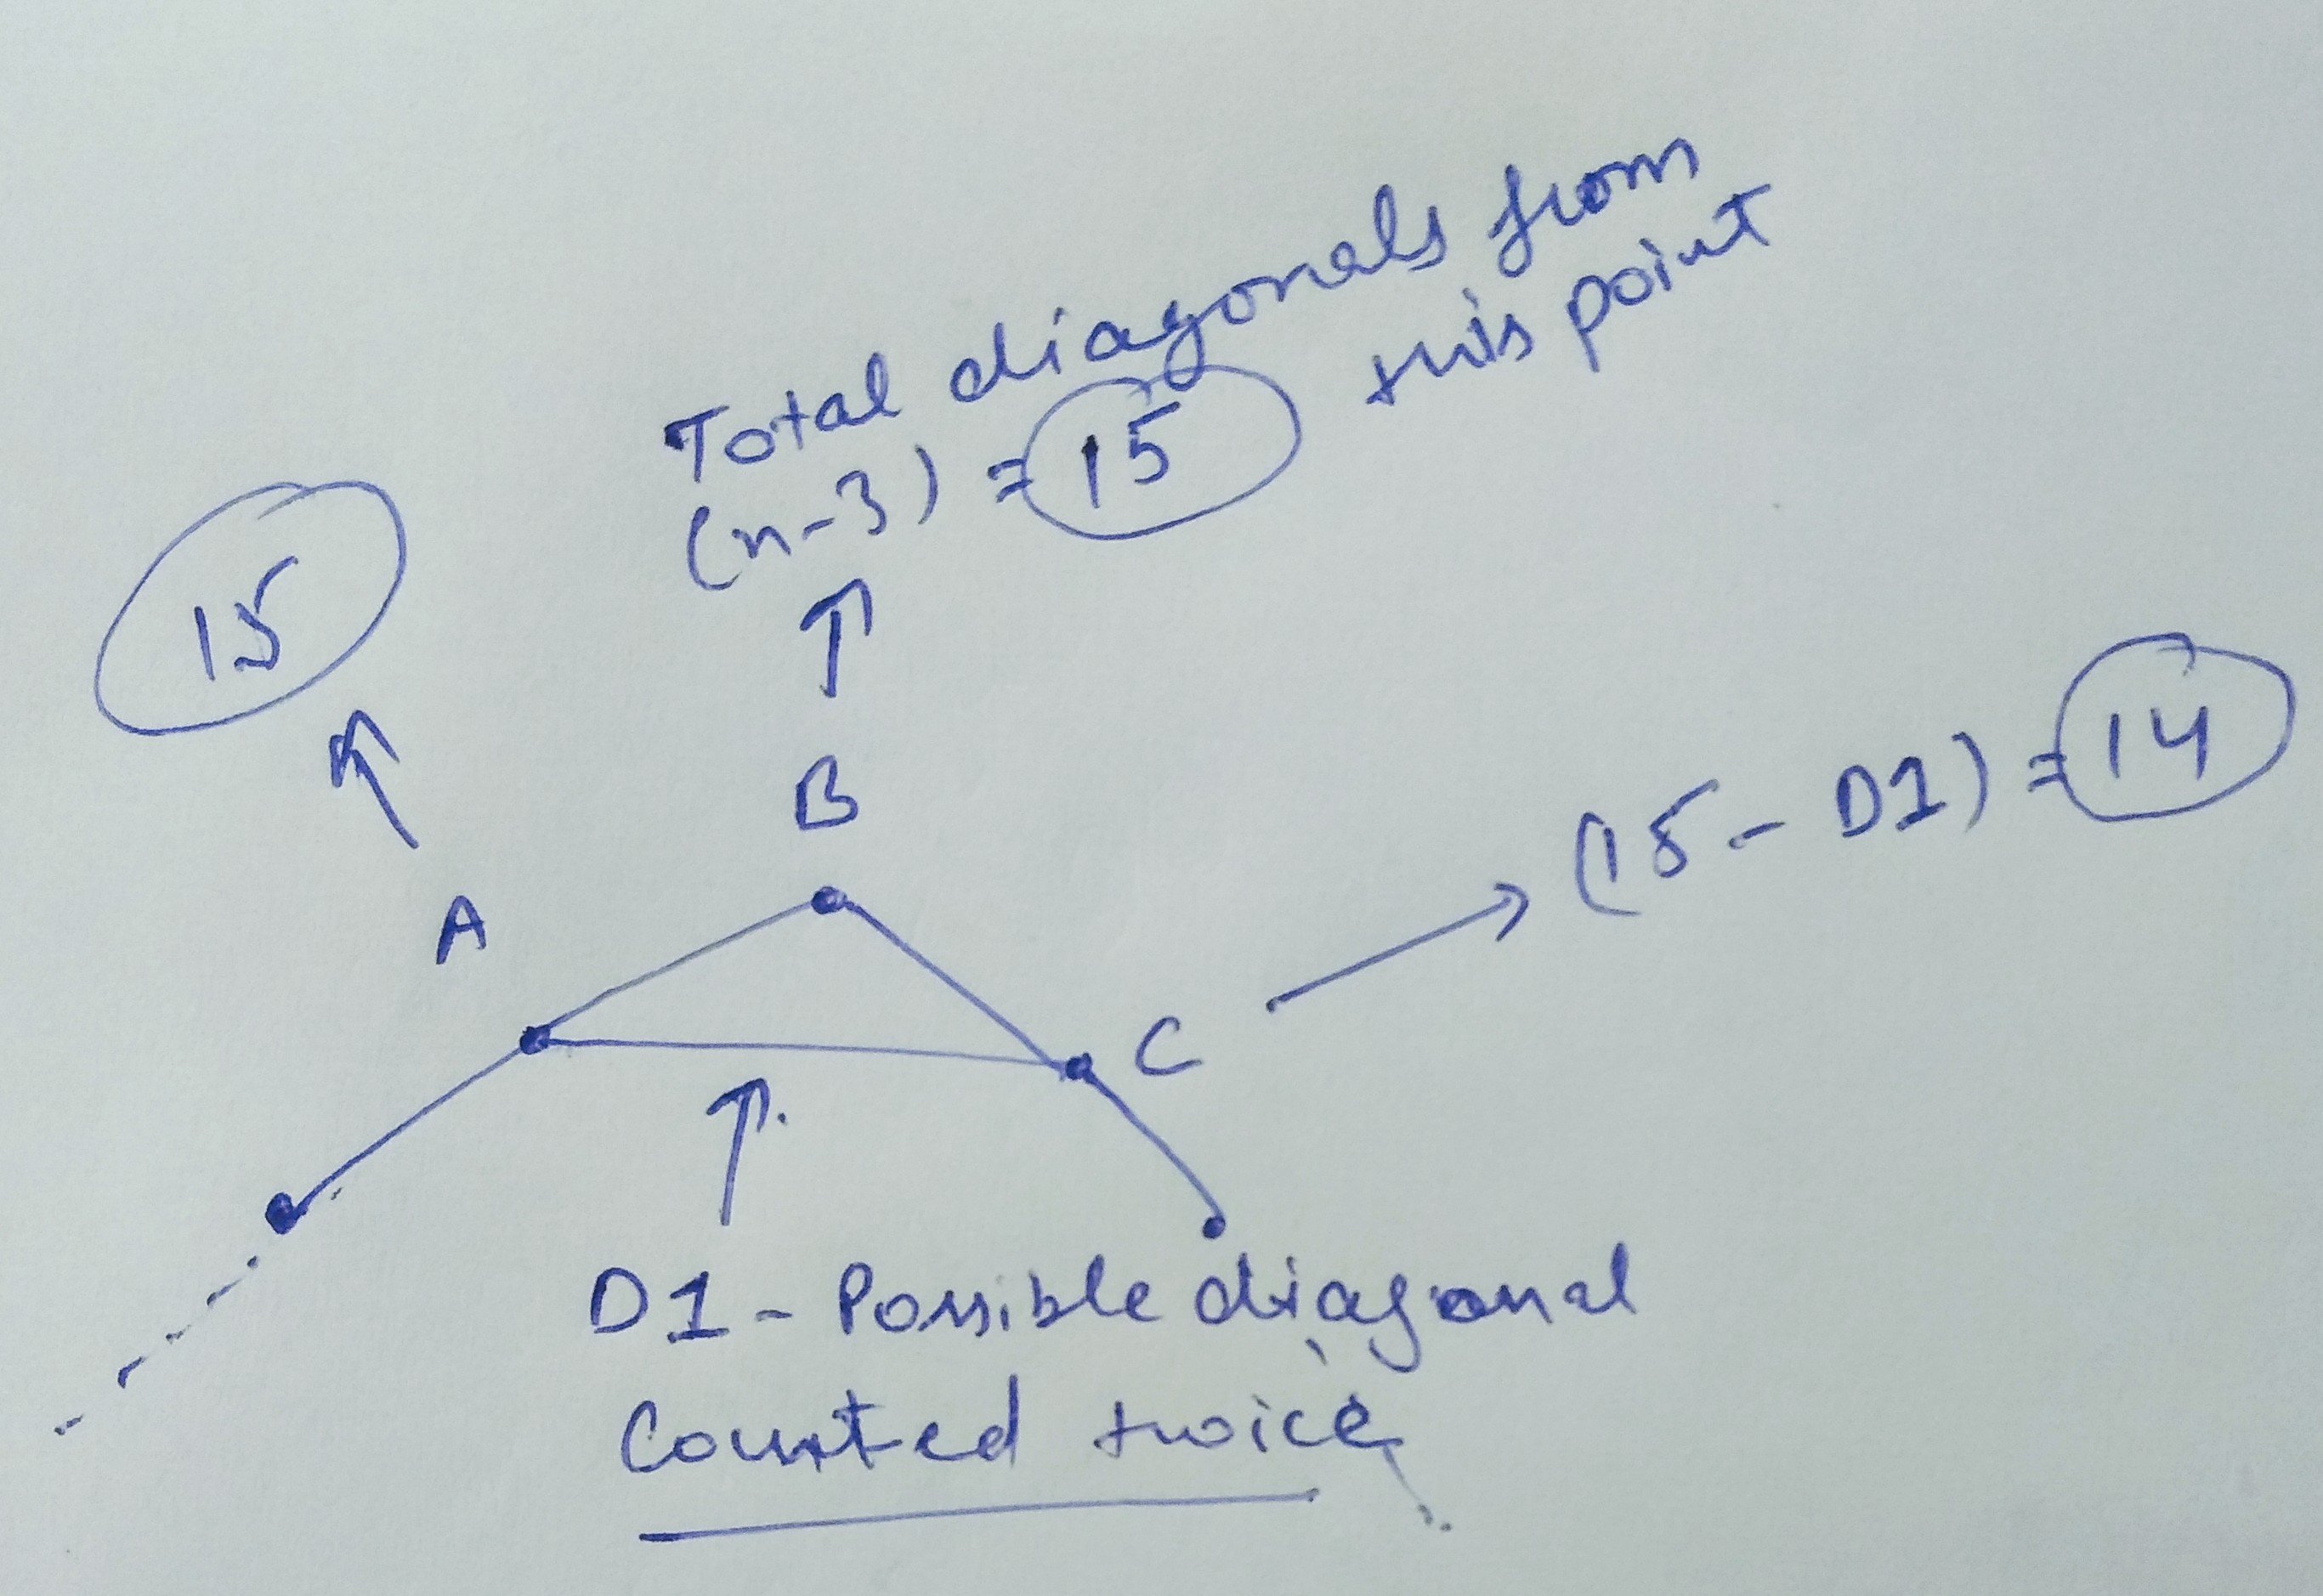 Total diagonals from
this point
(n-3) = 15
15
B
A
(15 - D1) = 14
C
D1 - Possible diagonal
Counted twice